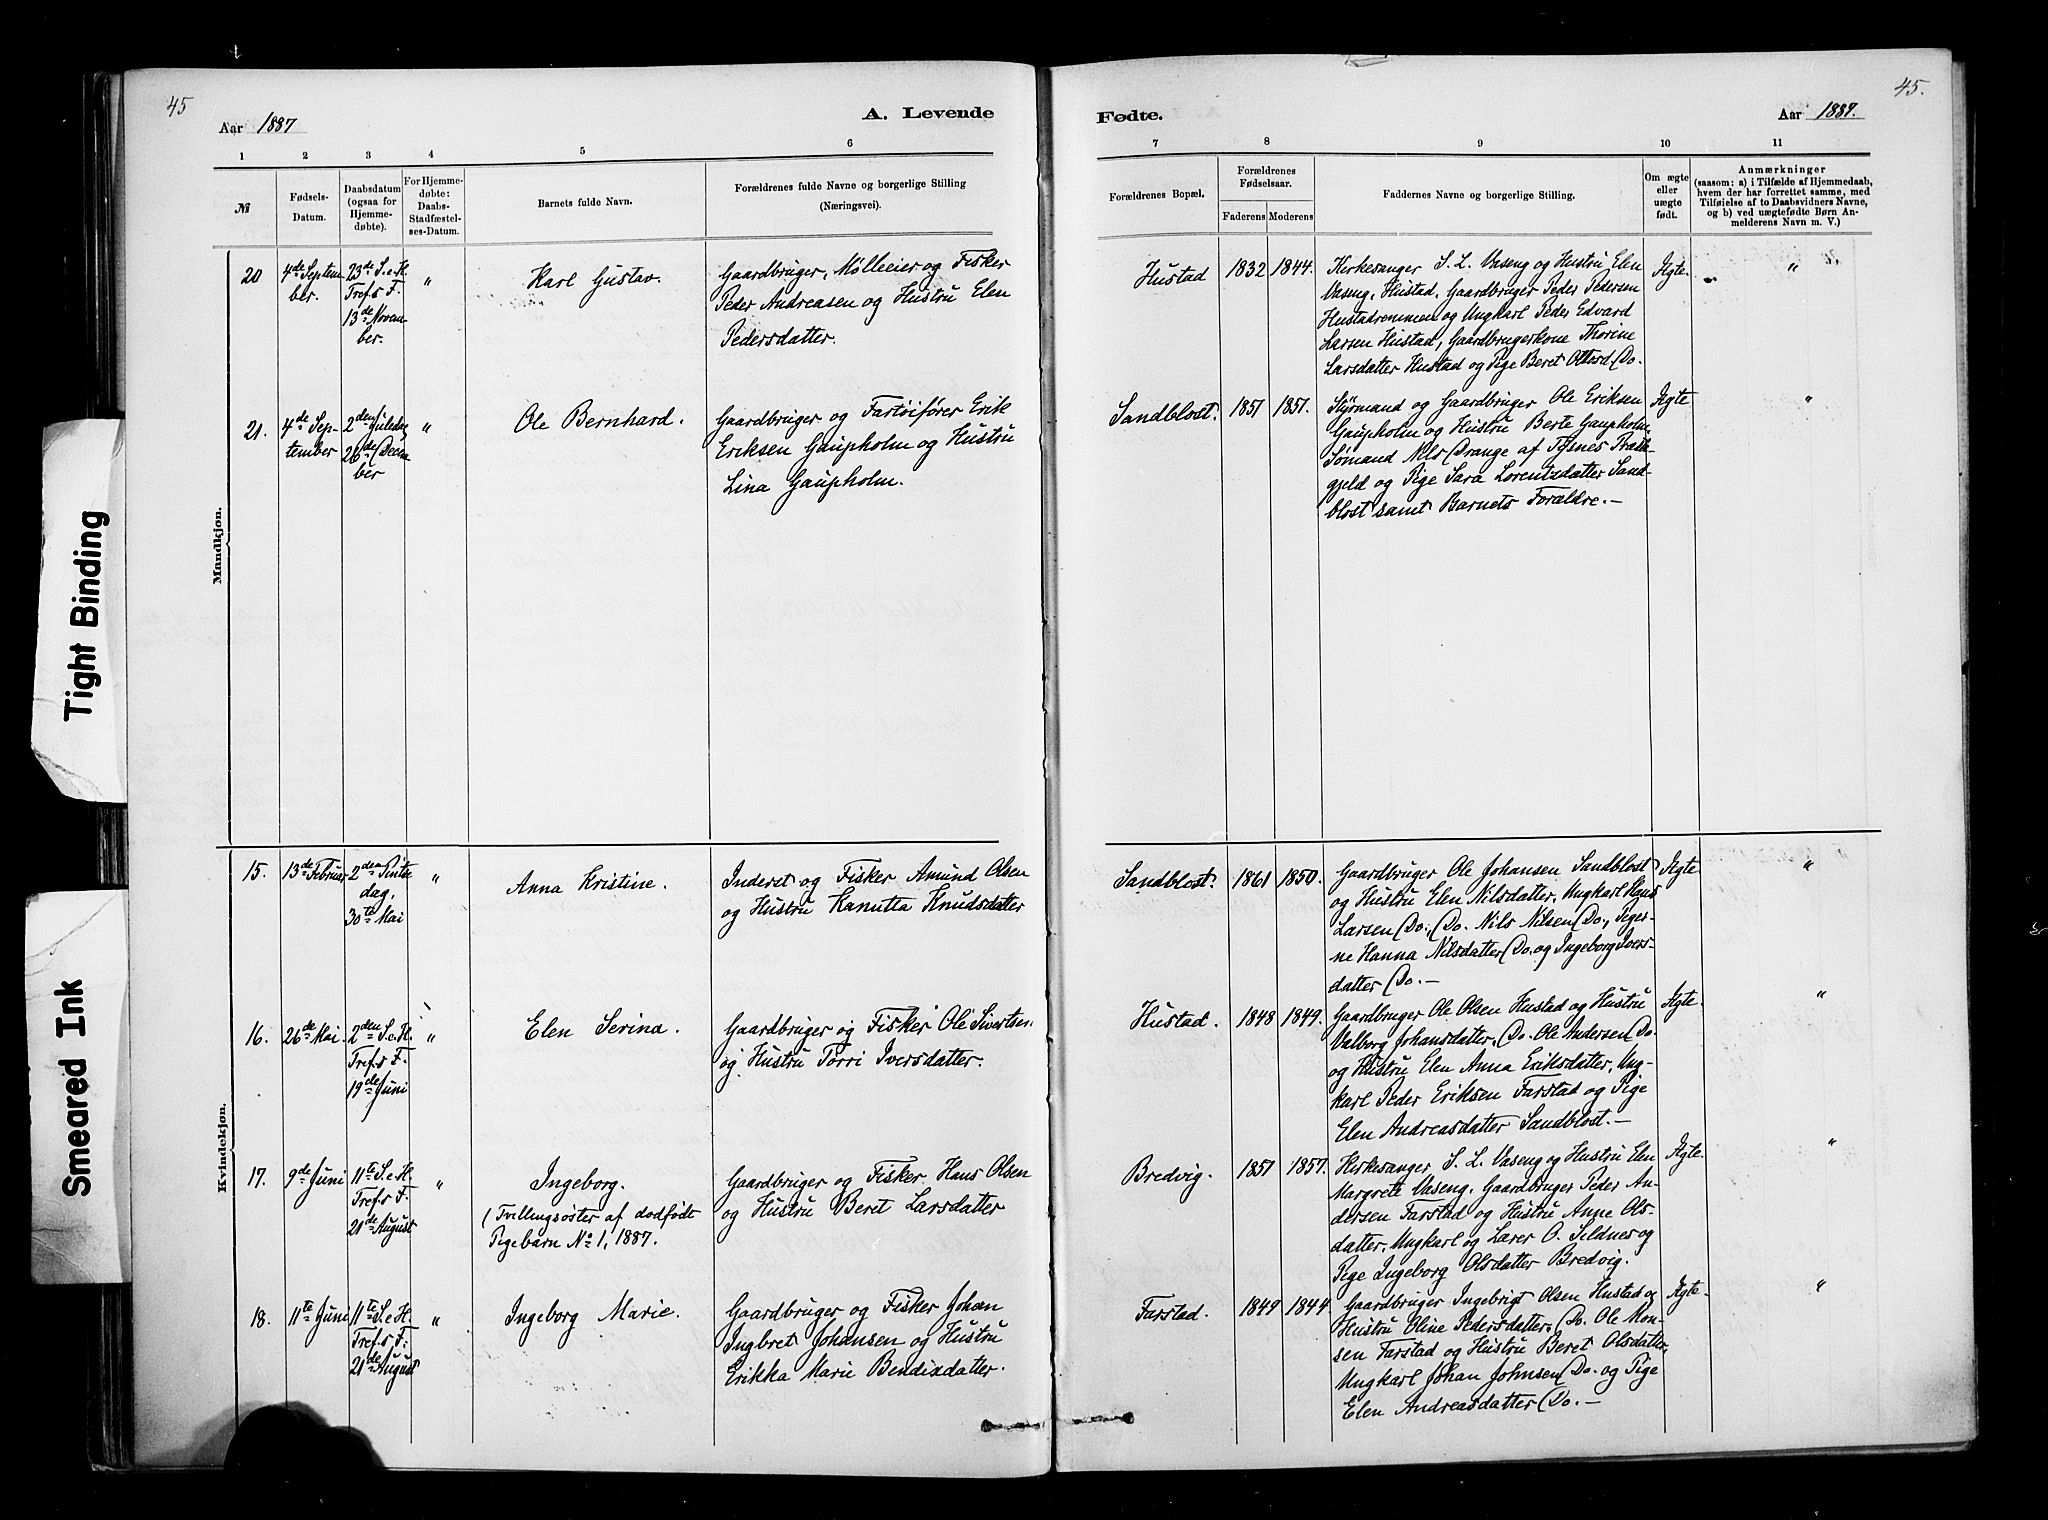 45
Aar 1887
A. Levende
1 2 3 4 5 6
№
Fødsels-
Datum.
Daabsdatum
(ogsaa for
Hjemme-
døbte).
For Hjemme-
døbte:
Daabs-
Stadfæstel-
ses-Datum.
Barnets fulde Navn.
Forældrenes fulde Navne og borgerlige Stilling
(Næringsvei).
Mandkjøn.
20
4de Septem
ber.
23de S. e. H.
Tref.s F.
13de Novem
ber.
"
Karl Gustav.
Gaardbruger, Mølleeier og Fisker
Peder Andreasen og Hustru Elen
Pedersdatter.
21.
4de Sep-
tember
2den Juledag
26de Decem
ber
"
Ole Bernhard.
Gaardbruger og Fartøifører Erik
Eriksen Gaupholm og Hustru
Lina Gaupholm.
Kvindekjøn.
15.
13de Februar
2den Pintse
dag,
30te Mai
"
Anna Kristine.
Inderst og Fisker Amund Olsen
og Hustru Kanutta Knudsdatter
16.
26de Mai.
2den S. e. H.
Tref.s F.
19de Juni
"
Elen Serina.
Gaardbruger og Fisker Ole Sivertsen
og Hustru Torri Iversdatter.
17.
9de Juni
11te S. e. H.
Tref.s F.
21de August
"
Ingeborg.
(Tvillingsøster af dødfødt
Pigebarn No 1, 1887.
Gaardbruger og Fisker Hans Olsen
og Hustru Beret Larsdatter
18.
11te Juni
11te S. e. H.
Tref.s F.
21de August
"
Ingeborg Marie.
Gaardbruger og Fisker Johan
Ingbret Johansen og Hustru
Erikka Marie Bendixdatter.
45.
Fødte.
Aar 1887.
7 8 9 10 11
Forældrenes Bopæl.
Forældrenes
Fødselsaar.
Faderens Moderens
Faddernes Navne og borgerlige Stilling.
Om ægte
eller
uægte
født.
Anmærkninger
(saasom: a) i Tilfælde af Hjemmedaab,
hvem der har forrettet samme, med
Tilføielse af to Daabsvidners Navne,
og b) ved uægtefødte Børn An-
melderens Navn m. V.)
Hustad
1832
1844.
Kirkesanger S. L. Vaseng og Hustru Elen
Vaseng, Hustad. Gaardbruger Peder Pedersen
Hustadremmen og Ungkarl Peder Edvard
Larsen Hustad, Gaardbrugerkone Thorine
Larsdatter Hustad og Pige Beret Ottosd. Do.
Ægte.
"
Sandblost.
1851
1851.
Styrmand og Gaardbruger Ole Eriksen
Gaupholm og Hustru Berte Gaupholm.
Sømand Nils Drange af Tysnes Præste-
gjeld og Pige Sara Lorentzdatter Sand-
blost samt Barnets Forældre.—
Ægte
"
Sandblost.
1861
1850.
Gaardbruger Ole Johansen Sandblost
og Hustru Elen Nilsdatter, Ungkarl Hans
Larsen Do., Do. Nils Nilsen Do., Piger-
ne Hanna Nilsdatter Do. og Ingeborg Ivers-
datter Do.—
Ægte
"
Hustad.
1848
1849.
Gaardbruger Ole Olsen Hustad og Hustru
Valborg Johansdatter, Do. Ole Andersen Do.
og Hustru Elen Anna Eriksdatter, Ung-
karl Peder Eriksen Farstad og Pige
Elen Andreasdatter Sandblost.—
Ægte
"
Bredvig.
1851
1857.
Kirkesanger S. L. Vaseng og Hustru Elen
Margrete Vaseng, Gaardbruger Peder An-
dersen Farstad og Hustru Anne Ols-
datter, Ungkarl og Lærer O. Seldnes og
Pige Ingeborg Olsdatter Bredvig.
Ægte.
"
Farstad.
1849
1844.
Gaardbruger Ingebrigt Olsen Hustad og
Hustru Oline Pedersdatter, Do. Ole Mon-
sen Farstad og Hustru Beret Olsdatter,
Ungkarl Johan Johnsen Do. og Pige
Elen Andreasdatter Do.—
Ægte.
"
Tight Binding
Smeared Ink